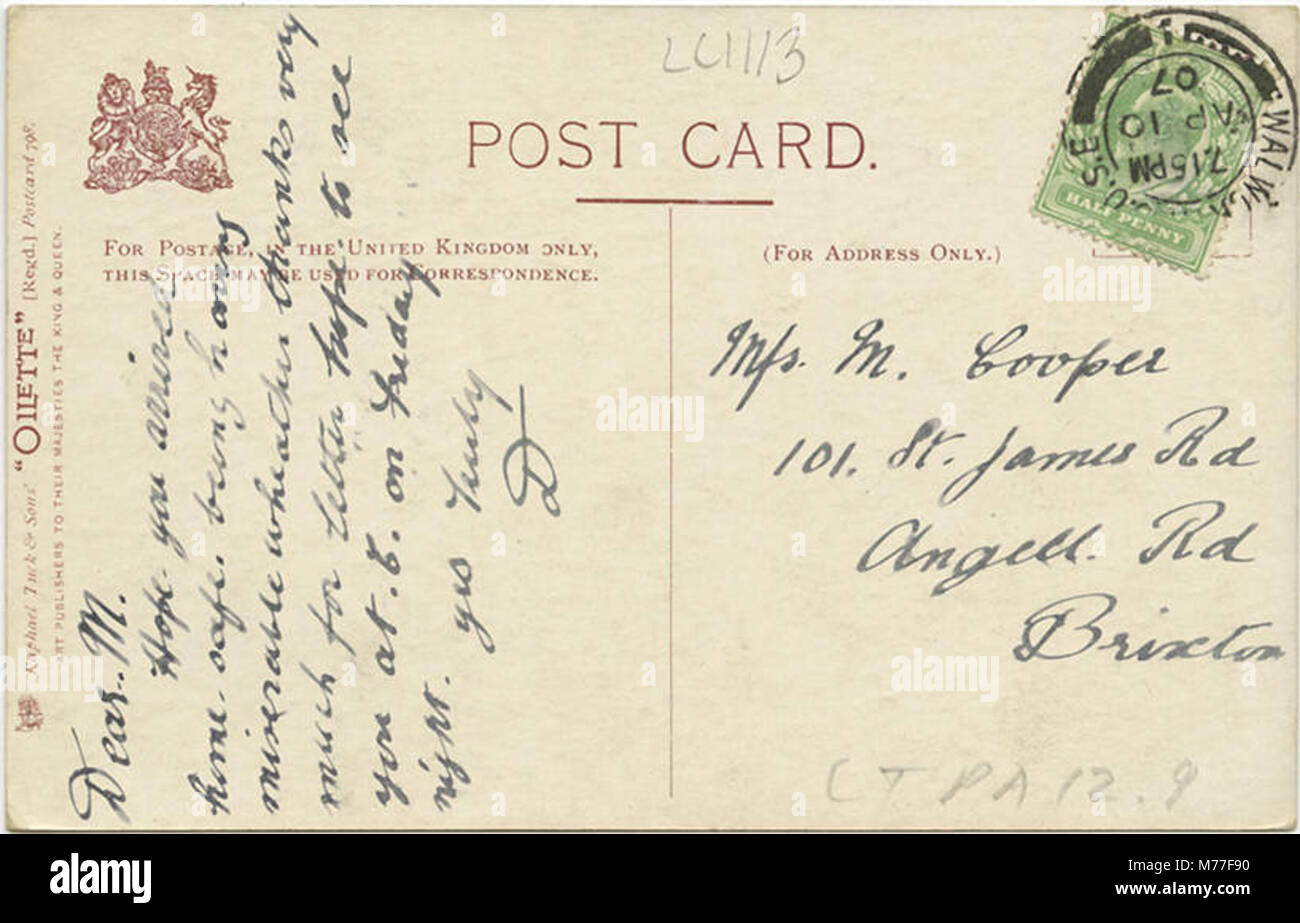 LC1113
POST CARD.
FOR POSTAGE, IN THE UNITED KINGDOM ONLY,
THIS SPACE MAY BE USED FOR CORRESPONDENCE.
(FOR ADDRESS ONLY.)
Raphael Tuck & Sons' "OILETTE" [Regd.] Postcard 798.
ART PUBLISHERS TO THEIR MAJESTIES THE KING & QUEEN.
Dear M.
Hope you arrived
home safe. being having
miserable wheather thanks very
much for letter hope to see
you at. E. on Friday
night. yrs truly
D
Mrs. M. Cooper
101. St. James Rd
Angell. Rd
Brixton
WALWORTH
S.E.
7.15 PM
AP 10
07
1
HALF PENNY
CT. PA 12.9
alamy
alamy
Image ID: M77F90
www.alamy.com